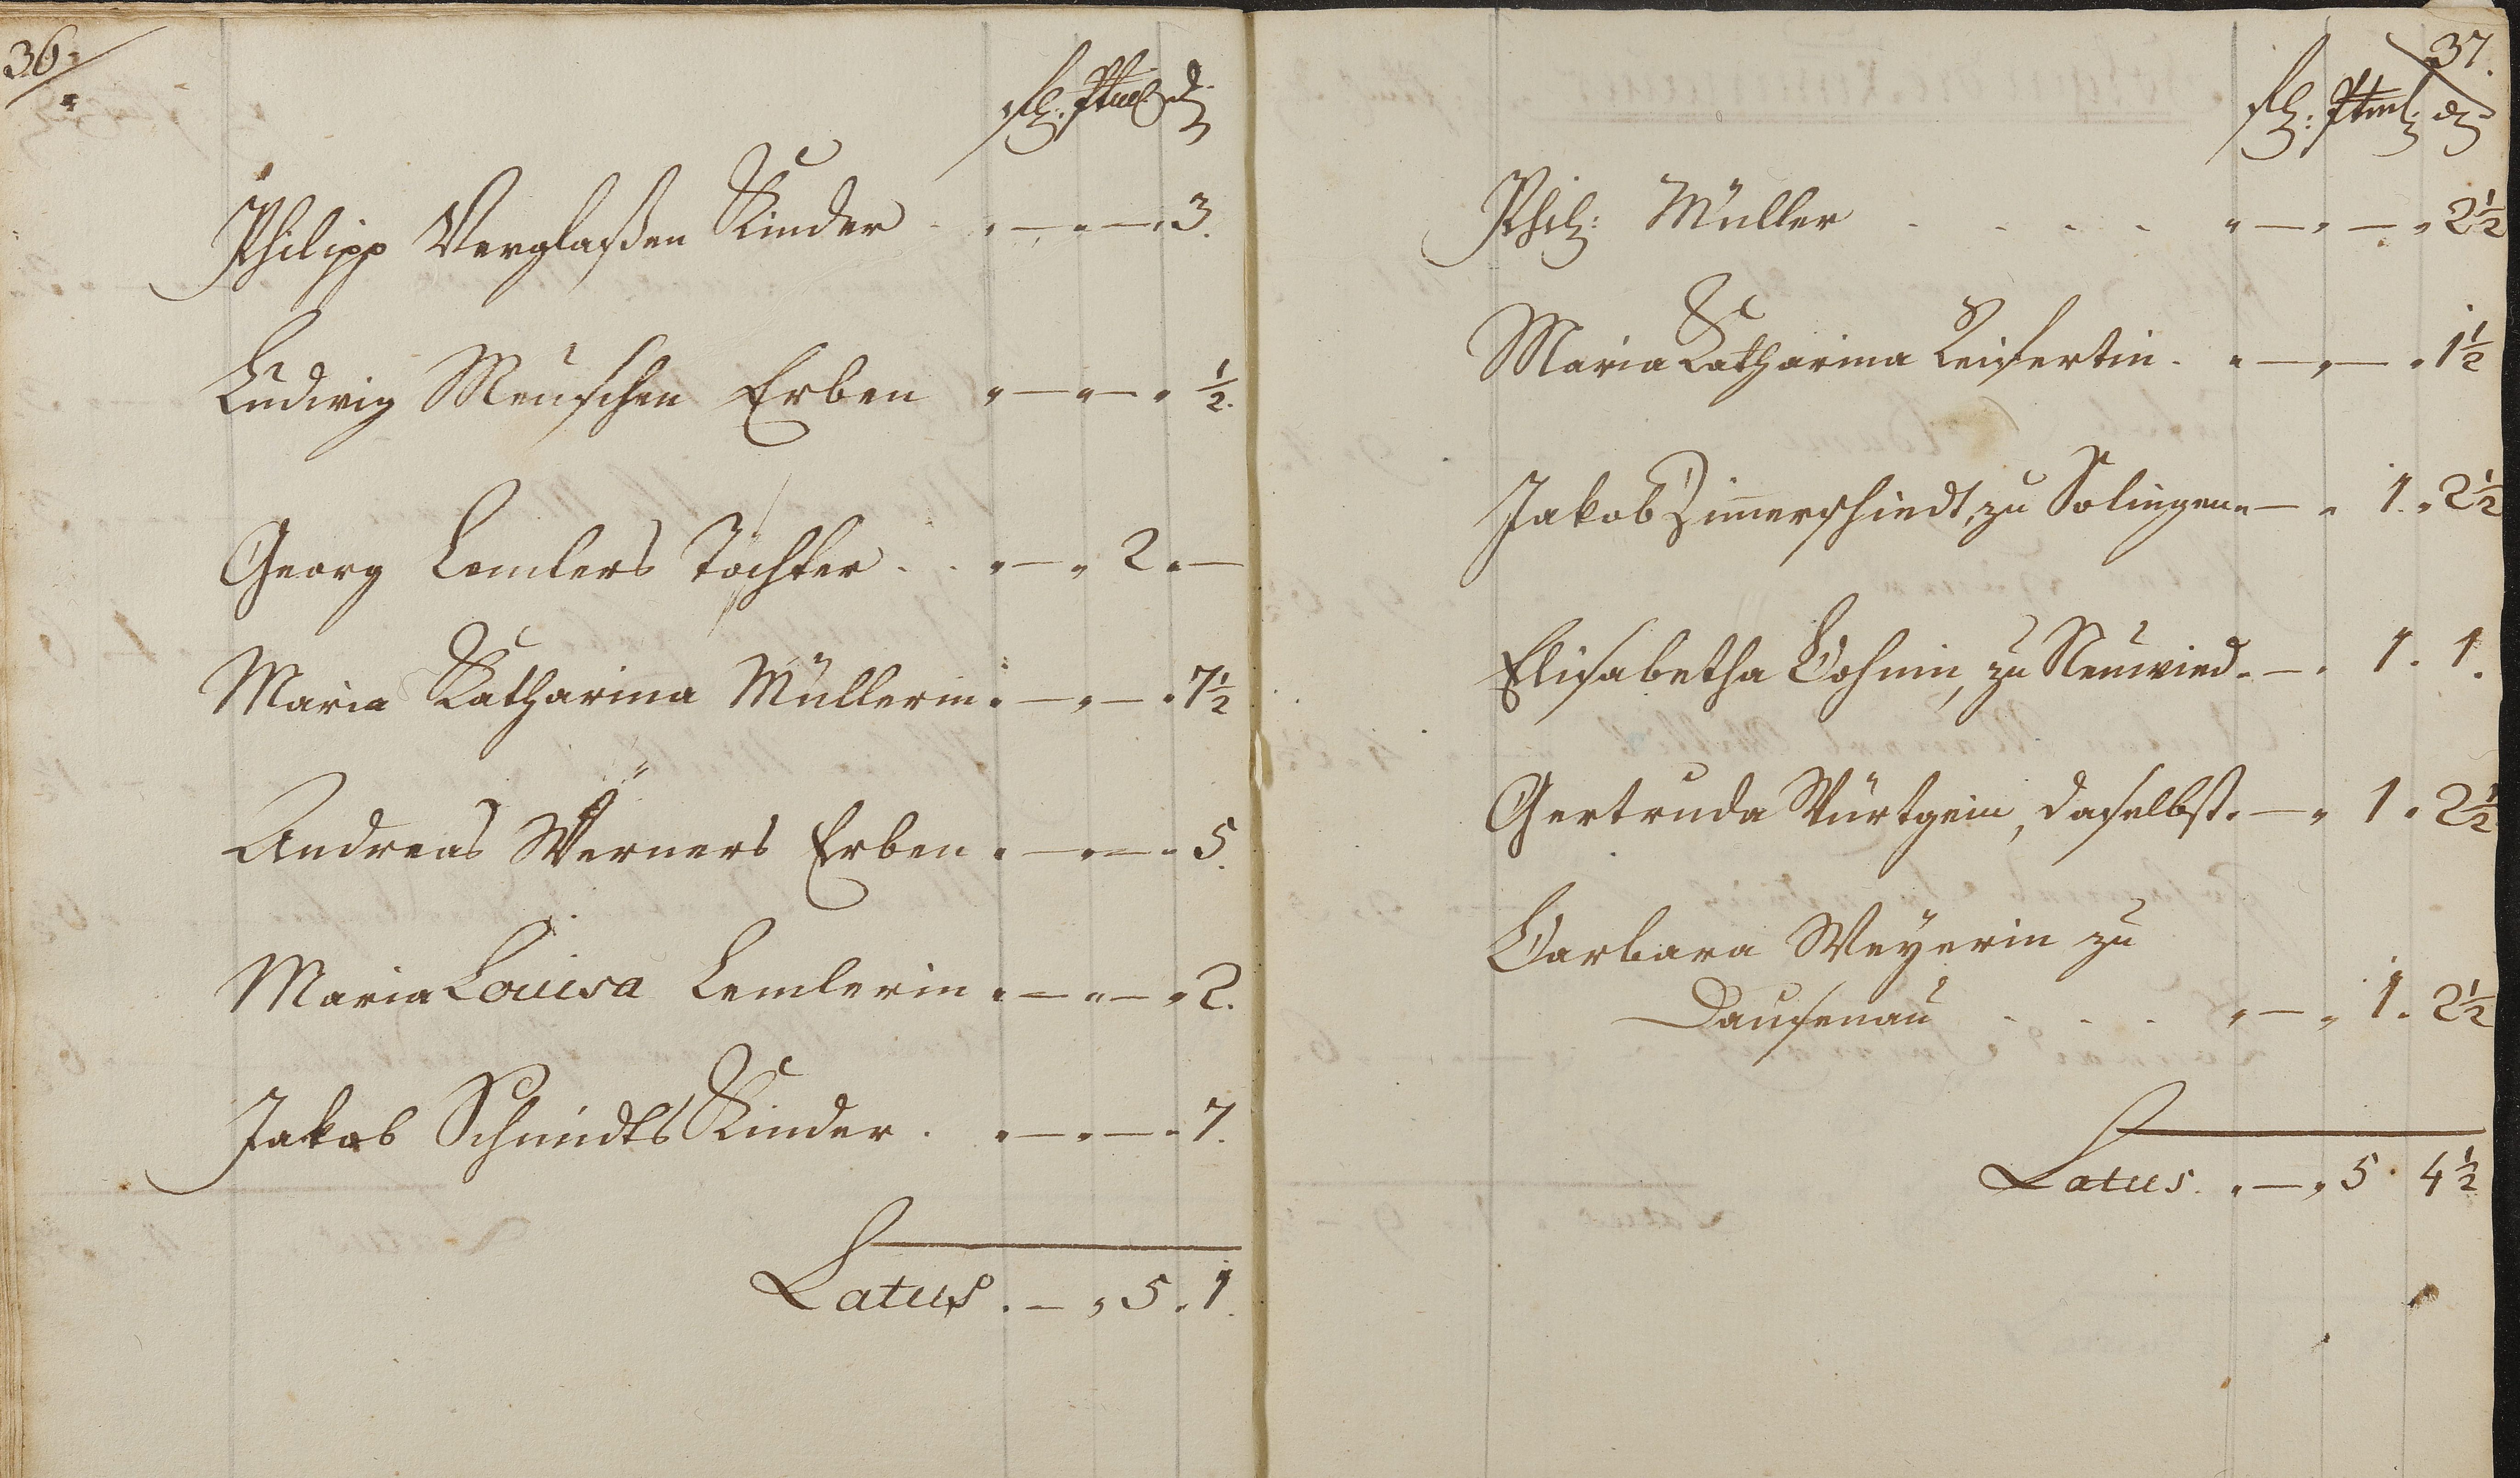 36.
fl. Stml. d.
Philipp Verglaßen Kinder . „ — „ — „ 3.
Ludwig Menschen Erben „ — „ — „ ½.
Georg Lemlers Tochter . . „ — „ 2 „ —
Maria Katharina Müllerin . „ — „ — „ 7½
Andreas Werners Erben . „ — „ — „ 5.
Maria Louisa Lemlerin . „ — „ — „ 2.
Jakob Schmidts Kinder . „ — „ — „ 7.
Latus . — „ 5 . 1.
37.
fl: Stml: d.
Phil: Müller . . . . „ — „ — „ 2½
Maria Katharina Seifertin . „ — „ — „ 1½
Jakob Zimerschiedt, zu Solingen „ — „ 1. „ 2½
Elisabetha Bohnin, zu Neuwied . — . 1 . 1.
Gertruda Würtgein, daselbst . — „ 1 . 2½
Barbara Weÿerin zu
Dausenau . . . „ — „ 1. 2½
Latus . „ — „ 5 . 4½